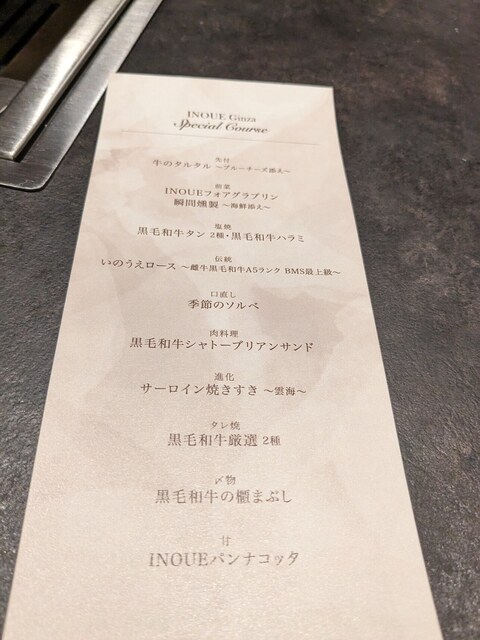 INOUE Ginza
Special Course
先付
牛のタルタル 〜ブルーチーズ添え〜
前菜
INOUEフォアグラプリン
瞬間燻製 〜海鮮添え〜
塩焼
黒毛和牛タン 2種・黒毛和牛ハラミ
伝統
いのうえロース 〜雌牛黒毛和牛A5ランク BMS最上級〜
口直し
季節のソルベ
肉料理
黒毛和牛シャトーブリアンサンド
進化
サーロイン焼きすき 〜雲海〜
タレ焼
黒毛和牛厳選 2種
〆物
黒毛和牛の櫃まぶし
甘
INOUEパンナコッタ